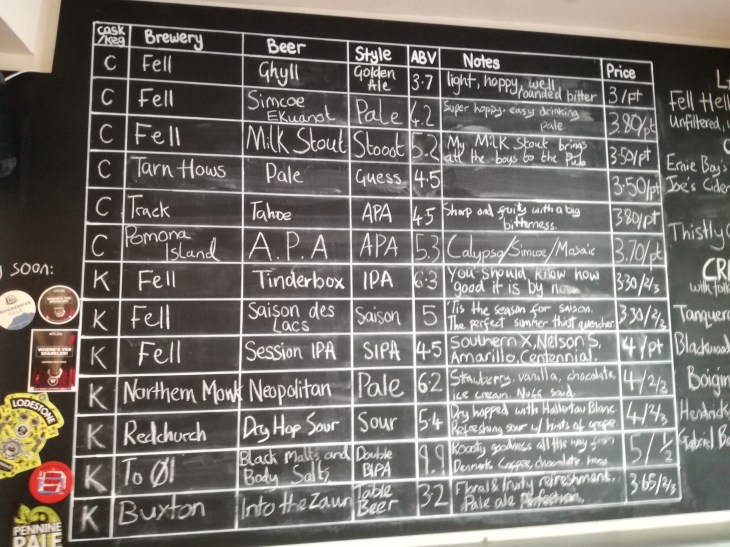 cask/keg Brewery Beer Style ABV Notes Price
C Fell Ghyll Golden Ale 3.7 light, hoppy, well rounded bitter 3/pt
C Fell Simcoe Ekuanot Pale 4.2 Super hoppy. easy drinking pale 3.80/pt
C Fell Milk Stout Stooot 5.2 My Milk Stout brings all the boys to the Pub 3.50/pt
C Tarn Hows Pale Guess 4.5 3.50/pt
C Track Tahoe APA 4.5 Sharp and fruity with a big bitterness. 3.80/pt
C Pomona Island A.P.A APA 5.3 Calypso/Simcoe/Mosaic 3.70/pt
K Fell Tinderbox IPA 6.3 You should know how good it is by now 3.30/2/3
K Fell Saison des Lacs Saison 5 'Tis the season for saison. The perfect summer thirst quencher 3.30/2/3
K Fell Session IPA SIPA 4.5 Southern X, Nelson S, Amarillo, Centennial. 4/pt
K Northern Monk Neopolitan Pale 6.2 Strawberry, vanilla, chocolate ice cream. Nuff said. 4/2/3
K Redchurch Dry Hop Sour Sour 5.4 Dry hopped with Hallertau Blanc Refreshing sour w/ hints of grape 4/2/3
K To Øl Black Malts and Body Salts Double BIPA 9.9 Roasty goodness all the way from Denmark Coffee, chocolate, 5/1/2
K Buxton Into the Zaun Table Beer 3.2 Floral & fruity refreshment. Pale ale Perfection. 3.65/2/3
soon:
LODESTONE
PENNINE
PALE
Fell Hell
Unfiltered,
Ernie Boy's
Joe's Cider
Thistly
with
Tanquer
Blackwood
Boigin
Hendrick